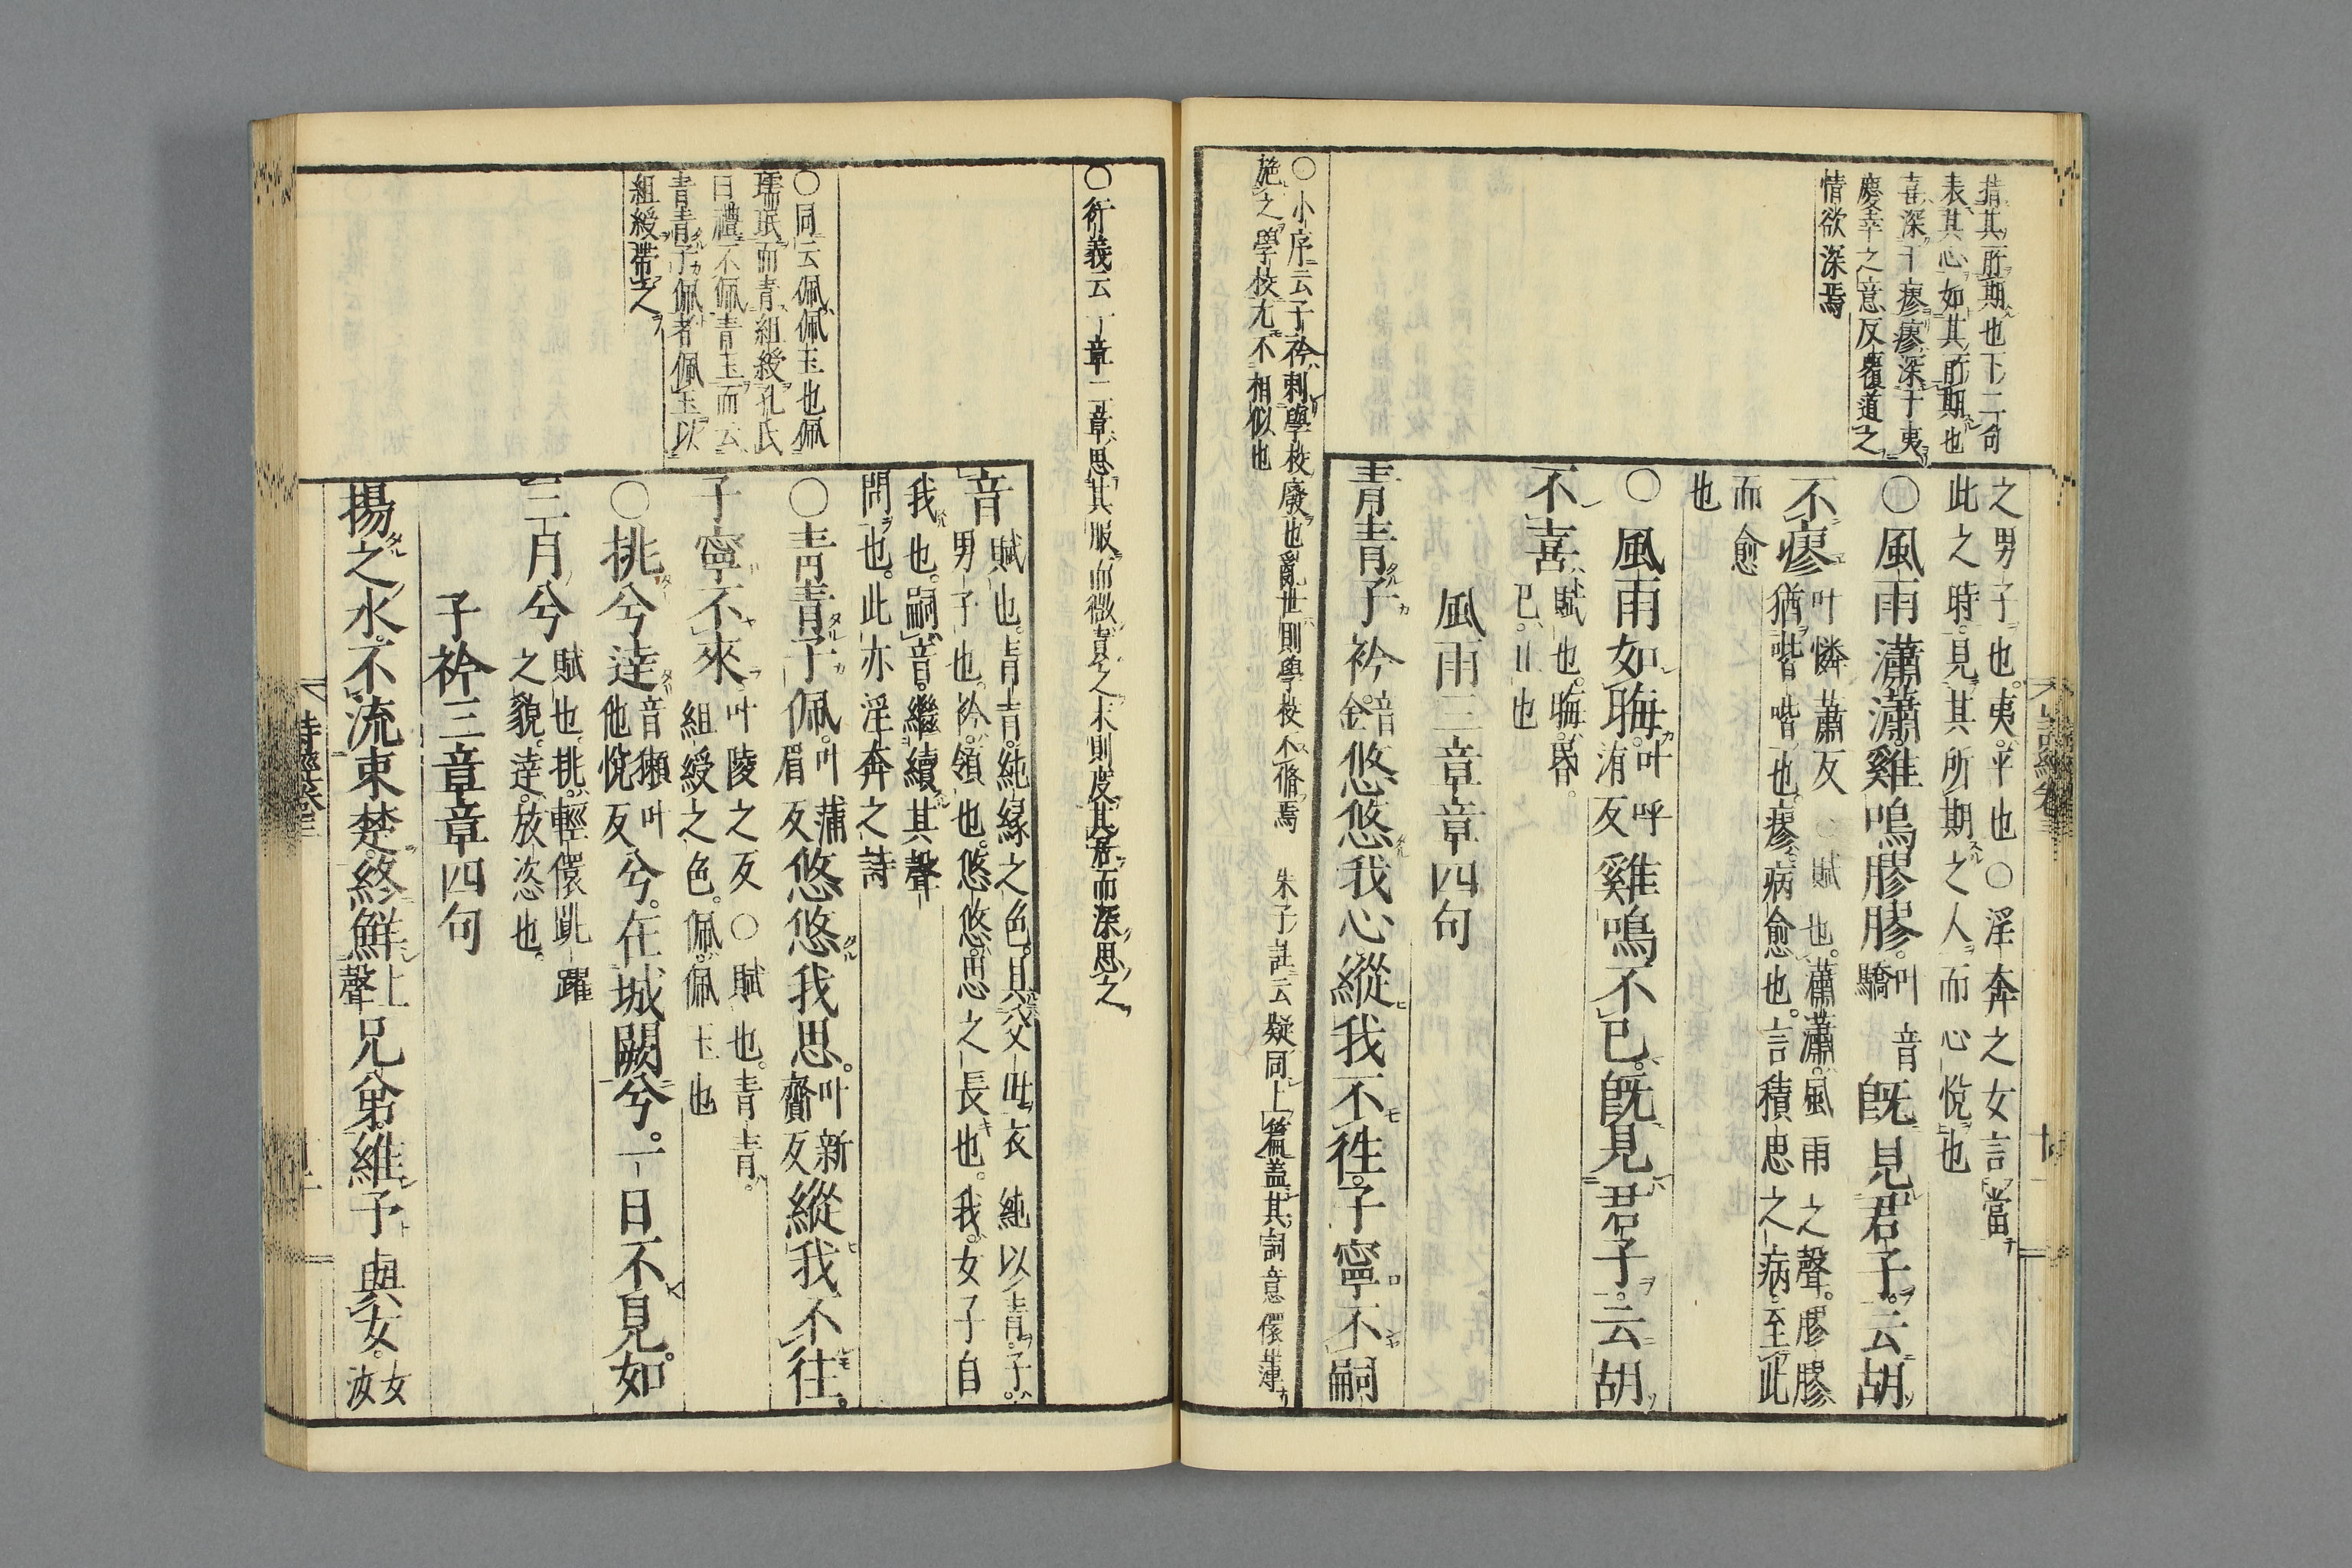 指其所期也下二句
表其心如其所期也
喜深于瘳瘳深于夷
慶幸之意反覆道之
情欲深焉
之男子也夷平也○淫奔之女言當
此之時見其所期之人而心悅也
○風雨瀟瀟雞鳴膠膠叶音驕既見君子云胡
不瘳叶憐蕭反○賦也瀟瀟風雨之聲膠膠
猶喈喈也瘳病愈也言積思之病至此
而愈
也
○風雨如晦叶呼洧反雞鳴不已既見君子云胡
不喜賦也晦昏
已止也
風雨三章章四句
○小序云子衿刺學校廢也亂世則學校不脩焉 朱子註云疑同上篇蓋其詞意儇薄
施之學校尤不相似也
青青子衿音金悠悠我心縱我不往子寧不嗣
○衍義云一章二章思其服而微責之末則度其居而深思之
音賦也青青純緣之色具父母衣純以青子
男子也衿領也悠悠思之長也我女子自
我也嗣音繼續其聲
問也此亦淫奔之詩
○同云佩佩玉也佩
瓀珉而青組綬孔氏
曰禮不佩青玉而云
青青子佩者佩玉以
組綬帶之
○青青子佩叶蒲眉反悠悠我思叶新齎反縱我不往
子寧不來叶陵之反○賦也青青
組綬之色佩佩玉也
○挑兮達音獺叶他悅反兮在城闕兮一日不見如
三月兮賦也挑輕儇跳躍
之貌達放恣也
子衿三章章四句
揚之水不流束楚終鮮上聲兄弟維予與女女汝
詩經卷三